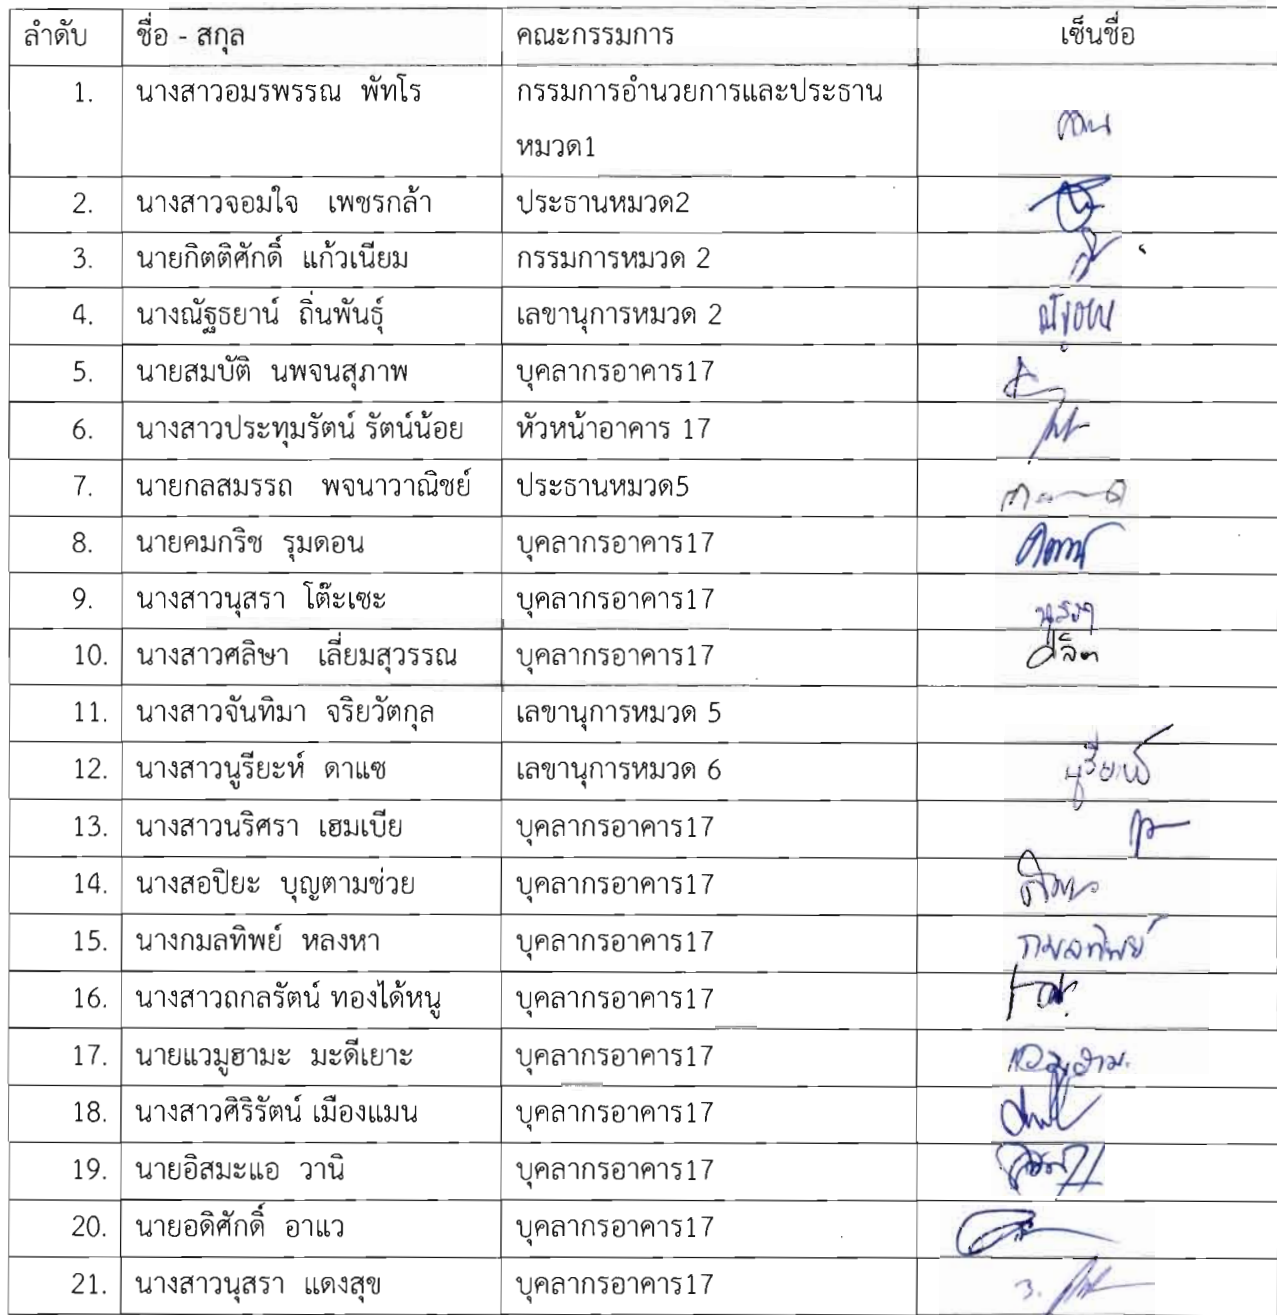 ลำดับ ชื่อ - สกุล คณะกรรมการ เซ็นชื่อ
1. นางสาวอมรพรรณ พัทโร กรรมการอำนวยการและประธาน
หมวด1
2. นางสาวจอมใจ เพชรกล้า ประธานหมวด2
3. นายกิตติศักดิ์ แก้วเนียม กรรมการหมวด 2
4. นางณัฐธยาน์ ถิ่นพันธุ์ เลขานุการหมวด 2
5. นายสมบัติ นพจนสุภาพ บุคลากรอาคาร17
6. นางสาวประทุมรัตน์ รัตน์น้อย หัวหน้าอาคาร 17
7. นายกลสมรรถ พจนาวาณิชย์ ประธานหมวด5
8. นายคมกริช รุมดอน บุคลากรอาคาร17
9. นางสาวนุสรา โต๊ะเซะ บุคลากรอาคาร17 นุสรา
10. นางสาวศลิษา เลี่ยมสุวรรณ บุคลากรอาคาร17
11. นางสาวจันทิมา จริยวัตกุล เลขานุการหมวด 5
12. นางสาวนูรียะห์ ดาแซ เลขานุการหมวด 6 นูรียะห์
13. นางสาวนริศรา เฮมเบีย บุคลากรอาคาร17
14. นางสอปิยะ บุญตามช่วย บุคลากรอาคาร17
15. นางกมลทิพย์ หลงหา บุคลากรอาคาร17 กมลทิพย์
16. นางสาวถกลรัตน์ ทองได้หนู บุคลากรอาคาร17
17. นายแวมูฮามะ มะดีเยาะ บุคลากรอาคาร17 แวมูฮามะ
18. นางสาวศิริรัตน์ เมืองแมน บุคลากรอาคาร17
19. นายอิสมะแอ วานิ บุคลากรอาคาร17
20. นายอดิศักดิ์ อาแว บุคลากรอาคาร17
21. นางสาวนุสรา แดงสุข บุคลากรอาคาร17